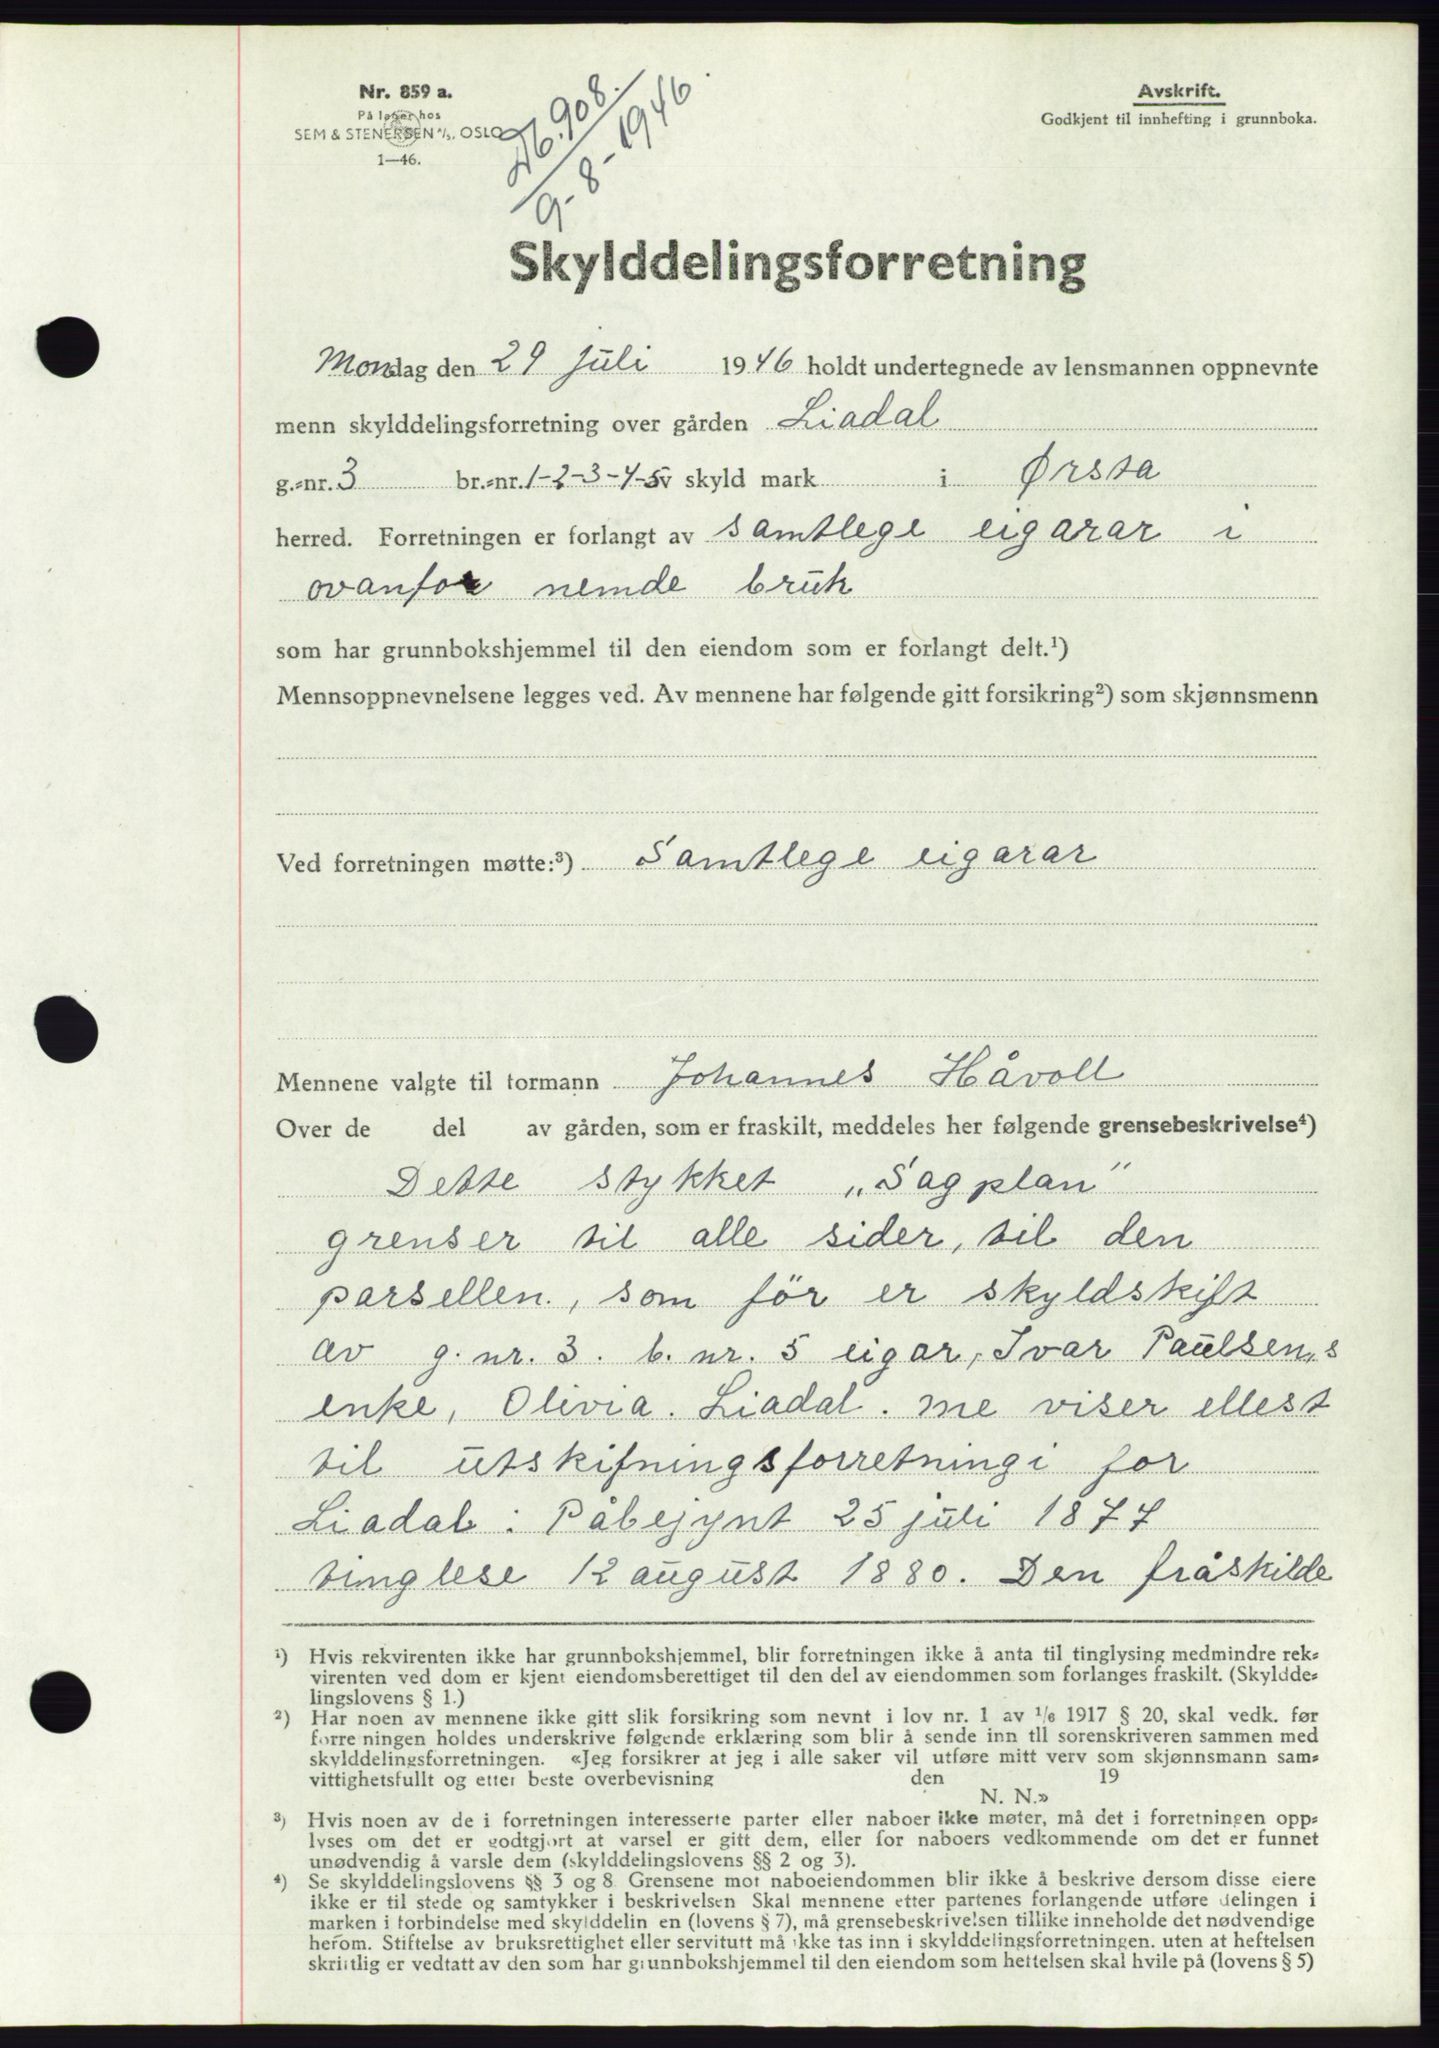 Nr. 859 a.
På lager hos
SEM & STENERSEN A/S, OSLO
1—46.
Db. 908.
9-8-1946.
Avskrift.
Godkjent til innhefting i grunnboka.
Skylddelingsforretning
Mondag den 29 juli 1946 holdt undertegnede av lensmannen oppnevnte
menn skylddelingsforretning over gården Liadal
g.=nr. 3 br.=nr. 1-2-3-4-5 av skyld mark i Ørsta
herred. Forretningen er forlangt av samtlege eigarar i
ovanfor nemde bruk
som har grunnbokshjemmel til den eiendom som er forlangt delt.¹)
Mennsoppnevnelsene legges ved. Av mennene har følgende gitt forsikring²) som skjønnsmenn
Ved forretningen møtte:³) Samtlege eigarar
Mennene valgte til formann Johannes Håvoll
Over de del av gården, som er fraskilt, meddeles her følgende grensebeskrivelse⁴)
Dette stykket „Sagplan"
grenser til alle sider, til den
parsellen., som för er skyldskift
av g. nr. 3. b. nr. 5 eigar, Ivar Paulsen,s
enke, Olivia. Liadal. me viser ellest
til utskifningsforretningi for
Liadal: Påbejynt 25 juli 1877
tinglese 12 august 1880. Den fråskilde
¹) Hvis rekvirenten ikke har grunnbokshjemmel, blir forretningen ikke å anta til tinglysing medmindre rek=
virenten ved dom er kjent eiendomsberettiget til den del av eiendommen som forlanges fraskilt. (Skyldde=
lingslovens § 1.)
²) Har noen av mennene ikke gitt slik forsikring som nevnt i lov nr. 1 av 1/6 1917 § 20, skal vedk. før
forre ningen holdes underskrive følgende erklæring som blir å sende inn til sorenskriveren sammen med
skylddelingsforretningen. «Jeg forsikrer at jeg i alle saker vil utføre mitt verv som skjønnsmann sam=
vittighetsfullt og etter beste overbevisning den 19
N. N.»
³) Hvis noen av de i forretningen interesserte parter eller naboer ikke møter, må det i forretningen opp=
lyses om det er godtgjort at varsel er gitt dem, eller for naboers vedkommende om det er funnet
unødvendig å varsle dem (skylddelingslovens §§ 2 og 3).
⁴) Se skylddelingslovens §§ 3 og 8. Grensene mot naboeiendommen blir ikke å beskrive dersom disse eiere
ikke er til stede og samtykker i beskrivelsen Skal mennene etter partenes forlangende utføre delingen i
marken i forbindelse med skylddelin en (lovens § 7), må grensebeskrivelsen tillike inneholde det nødvendige
herom. Stiftelse av bruksrettighet eller servitutt må ikke tas inn i skylddelingsforretningen. uten at heftelsen
skriftlig er vedtatt av den som har grunnbokshjemmel til den eiendom som heftelsen skal hvile på (lovens § 5)